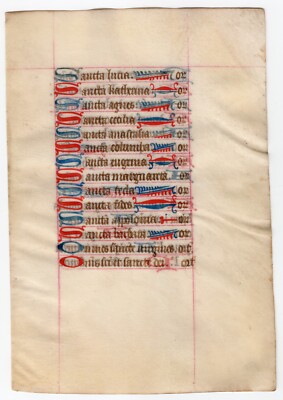 Sancta lucia or
Sancta katherina or
Sancta agnes or
Sancta cecilia or
Sancta anastasia or
Sancta columba or
Sancta eugenia or
Sancta or
Sancta tecla or
Sancta fides or
Sancta apolonia or
Sancta barbara or
Omnes sancte virgines
Omnes sancti et sancte dei